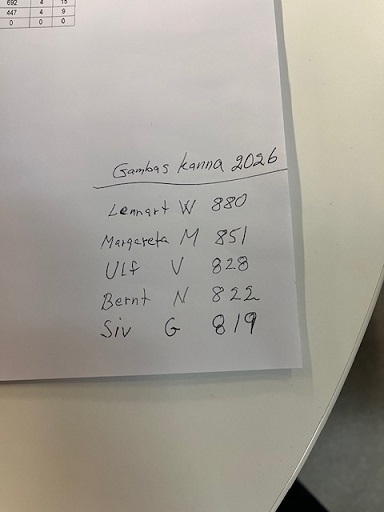 692 4 15
447 4 9
0 0 0
Gambas kanna 2026
Lennart W 880
Margareta M 851
Ulf V 828
Bernt N 822
Siv G 819